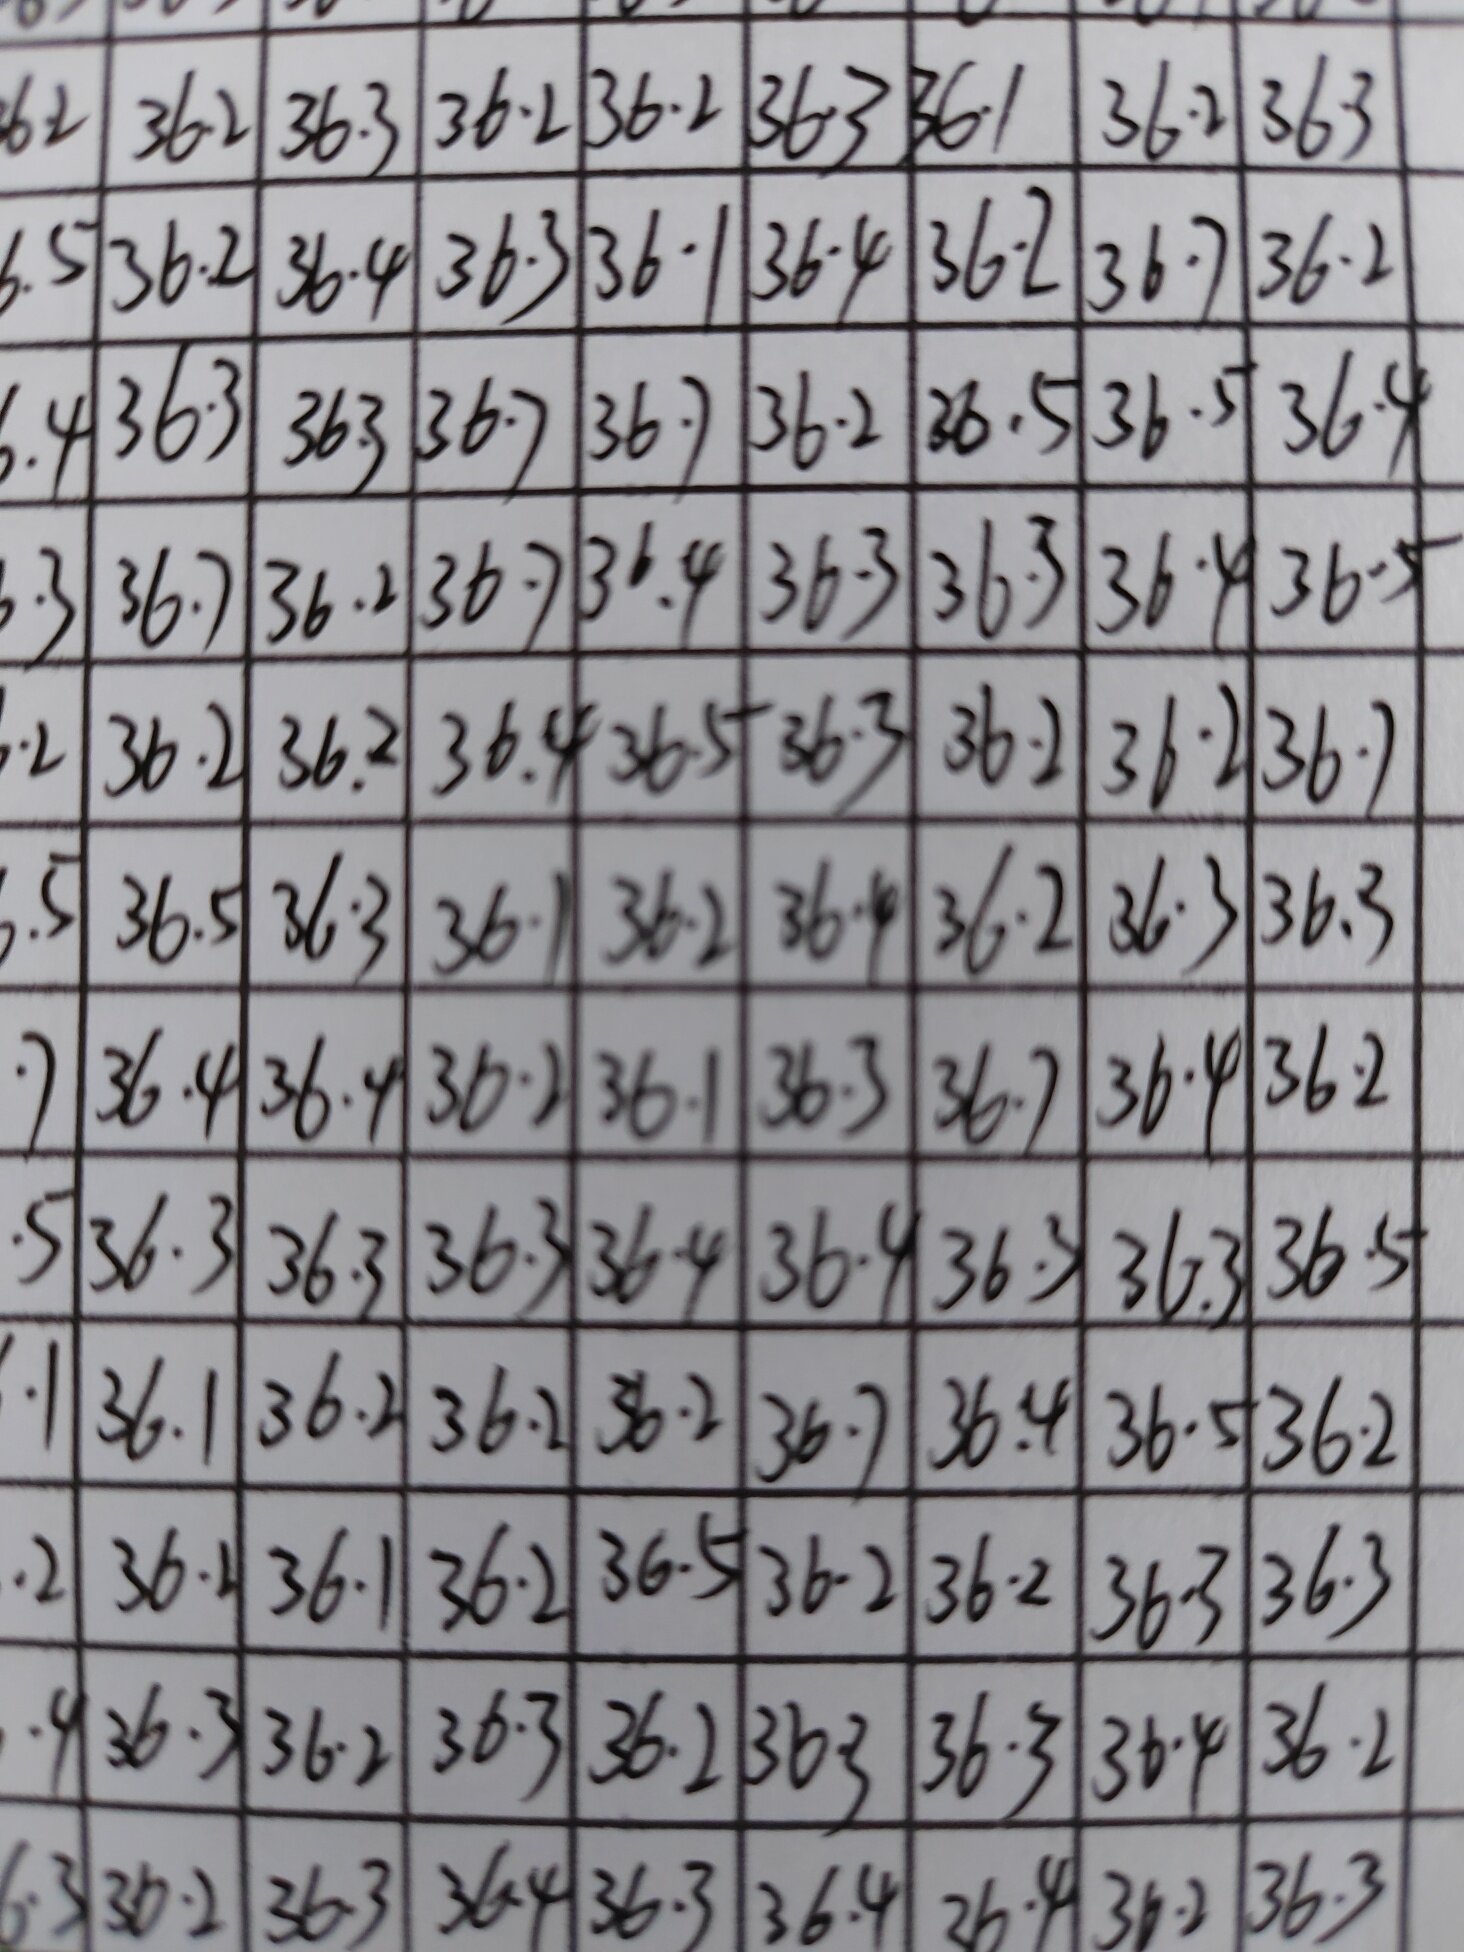 36.2 36.2 36.3 36.2 36.2 36.3 36.1 36.2 36.3
6.5 36.2 36.4 36.3 36.1 36.4 36.2 36.7 36.2
6.4 36.3 36.3 36.7 36.7 36.2 36.5 36.5 36.4
6.3 36.7 36.2 36.7 36.4 36.3 36.3 36.4 36.5
6.2 36.2 36.2 36.4 36.5 36.3 36.2 36.2 36.7
6.5 36.5 36.3 36.1 36.2 36.4 36.2 36.3 36.3
.7 36.4 36.4 36.2 36.1 36.3 36.7 36.4 36.2
.5 36.3 36.3 36.3 36.4 36.4 36.3 36.3 36.5
.1 36.1 36.2 36.2 36.2 36.7 36.4 36.5 36.2
.2 36.2 36.1 36.2 36.5 36.2 36.2 36.3 36.3
.4 36.3 36.2 36.3 36.2 36.3 36.3 36.4 36.2
6.3 36.2 36.3 36.4 36.3 36.4 36.4 36.2 36.3